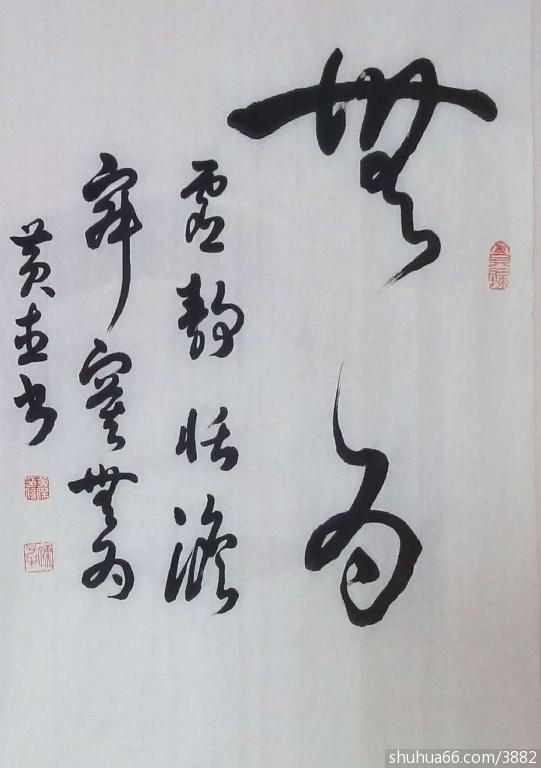 無為
虛靜恬澹
寂寞無為
黃 书
shuhua66.com/3882